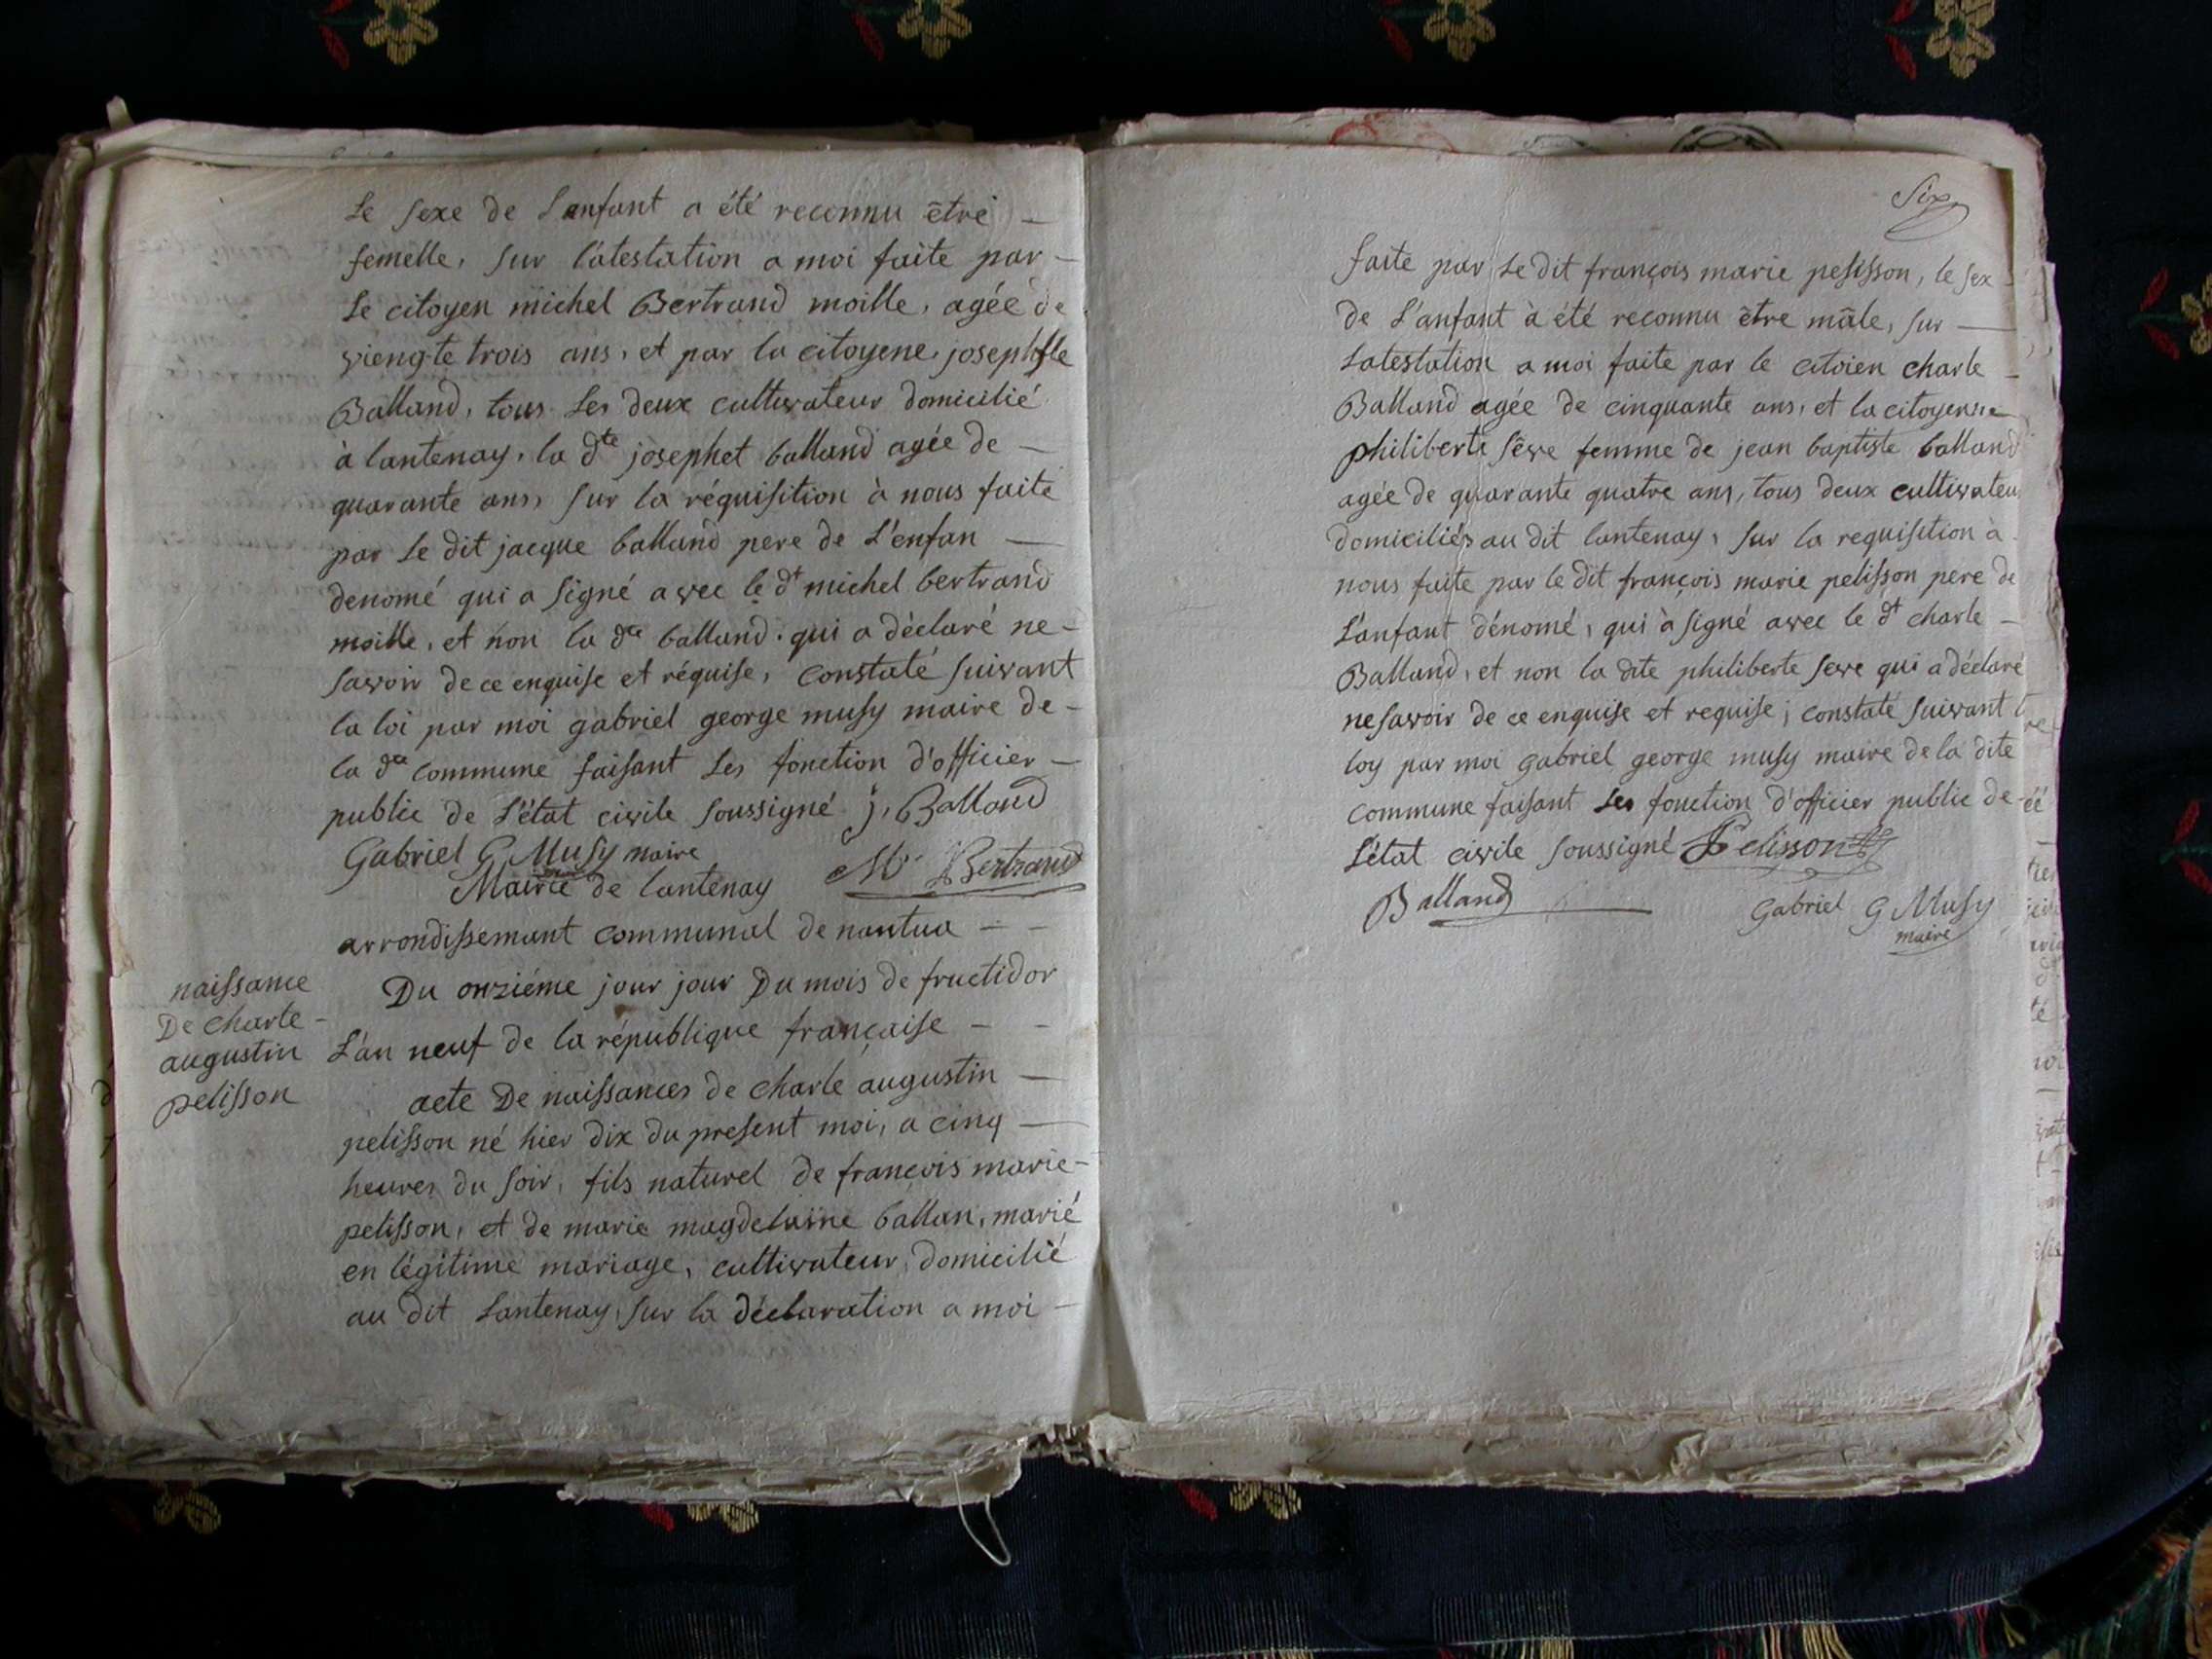 Le sexe de Lanfant a été reconnu être —
femelle, sur l'atestation a moi faite par —
Le citoyen michel Bertrand moille, agée de
viengte trois ans, et par la citoyene
Balland, tous Les deux cultivateur domicilié
à lantenay, la dte josephet balland agée de —
quarante ans, sur la réquisition à nous faite
par Le dit jacque balland pere de L'enfan —
denomé qui a signé avec le dt michel bertrand
moille, et non la dte balland. qui a déclaré ne-
savoir de ce enquise et réquise, Constaté suivant
la loi par moi gabriel george musy maire de -
la dte commune faisant Les fonction d'officier —
public de L'état civile soussigné j. Balland
Gabriel G Musy maire
M. Bertrand
Mairie de lantenay
arrondissemant communal de nantua — -
naissance
De charle -
augustin
pelisson
Du onziéme jour jour Du mois de fructidor
L'an neuf de la république française — -
acte De naissances de charle augustin —
pelisson né hier dix du present moi, a cinq —
heures du soir, fils naturel de françois marie -
pelisson, et de marie magdelaine ballan, marié
en légitime mariage, cultivateur, domicilié
au dit Lantenay, sur la déclaration a moi —
Six
faite par Le dit françois marie pelisson, le sex
de L'anfant à été reconnu être mâle, sur —
Latestation a moi faite par le citoien charle —
Balland agée de cinquante ans, et la citoyenne
philiberte sêve femme de jean baptiste balland
agée de quarante quatre ans, tous deux cultivateu
domiciliés au dit lantenay, sur la requisition à
nous faite par le dit françois marie pelisson pere de
L'anfant dénomé, qui à signé avec le dt charle —
Balland, et non la dite philiberte seve qui a déclaré
ne savoir de ce enquise et requise; constaté suivant
loy par moi gabriel george musy maire de la dite
commune faisant Les fonction d'officier public de -
L'état civile soussigné Pelisson
Balland
Gabriel G Musy
maire